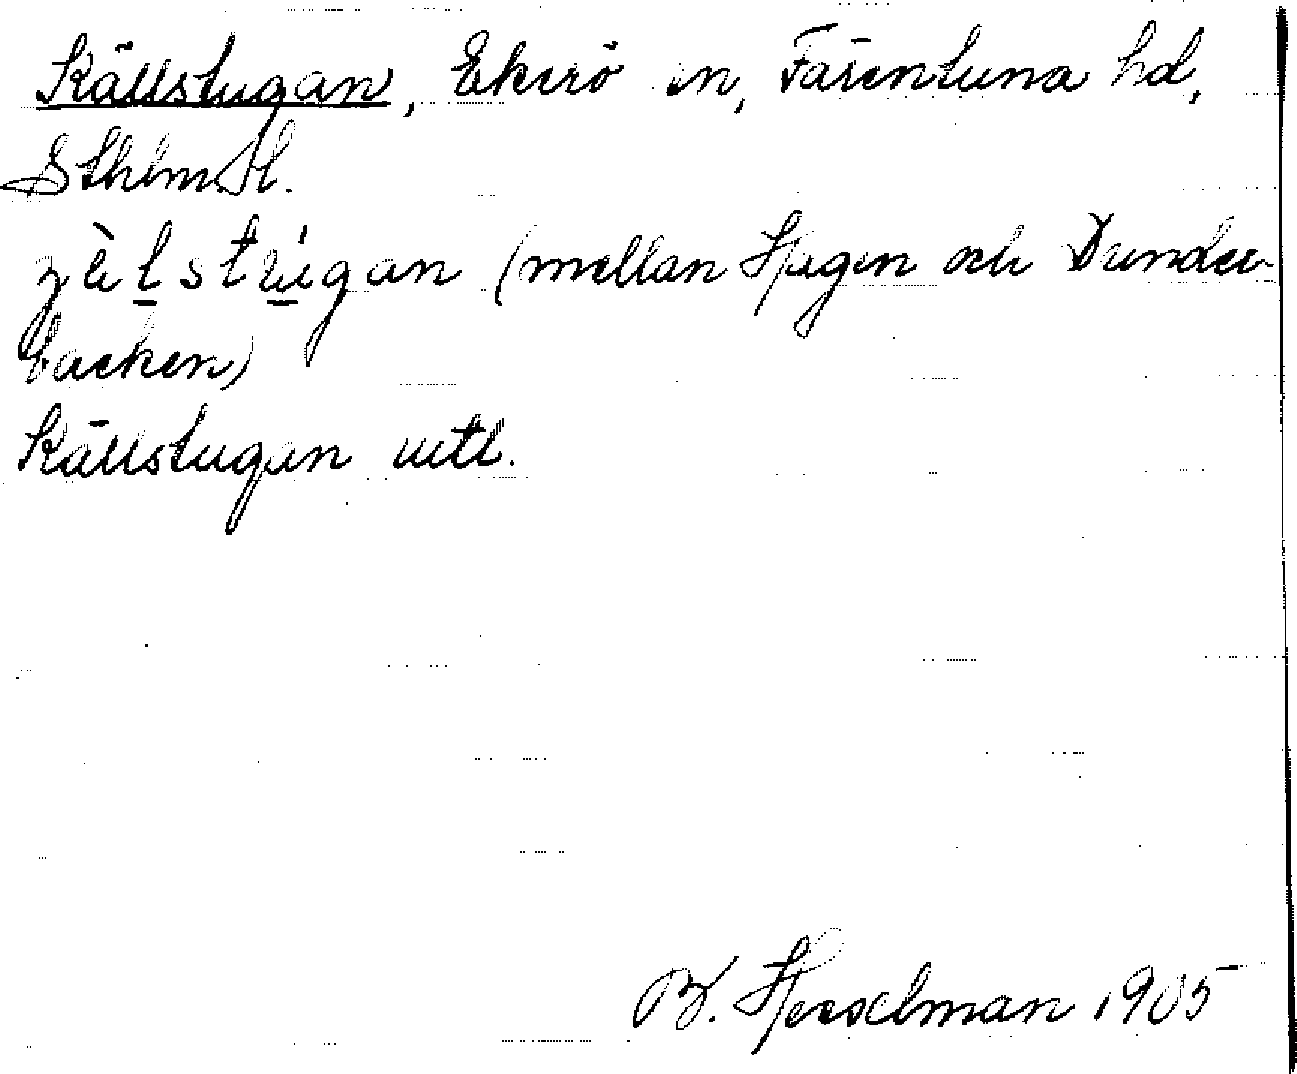 Källstugan, Ekerö sn, Färentuna hd,
Sthlms l.
çèlstúgan (mellan Hagen och Dunder-
backen)
Källstugan uttl.
B. Hesselman 1905